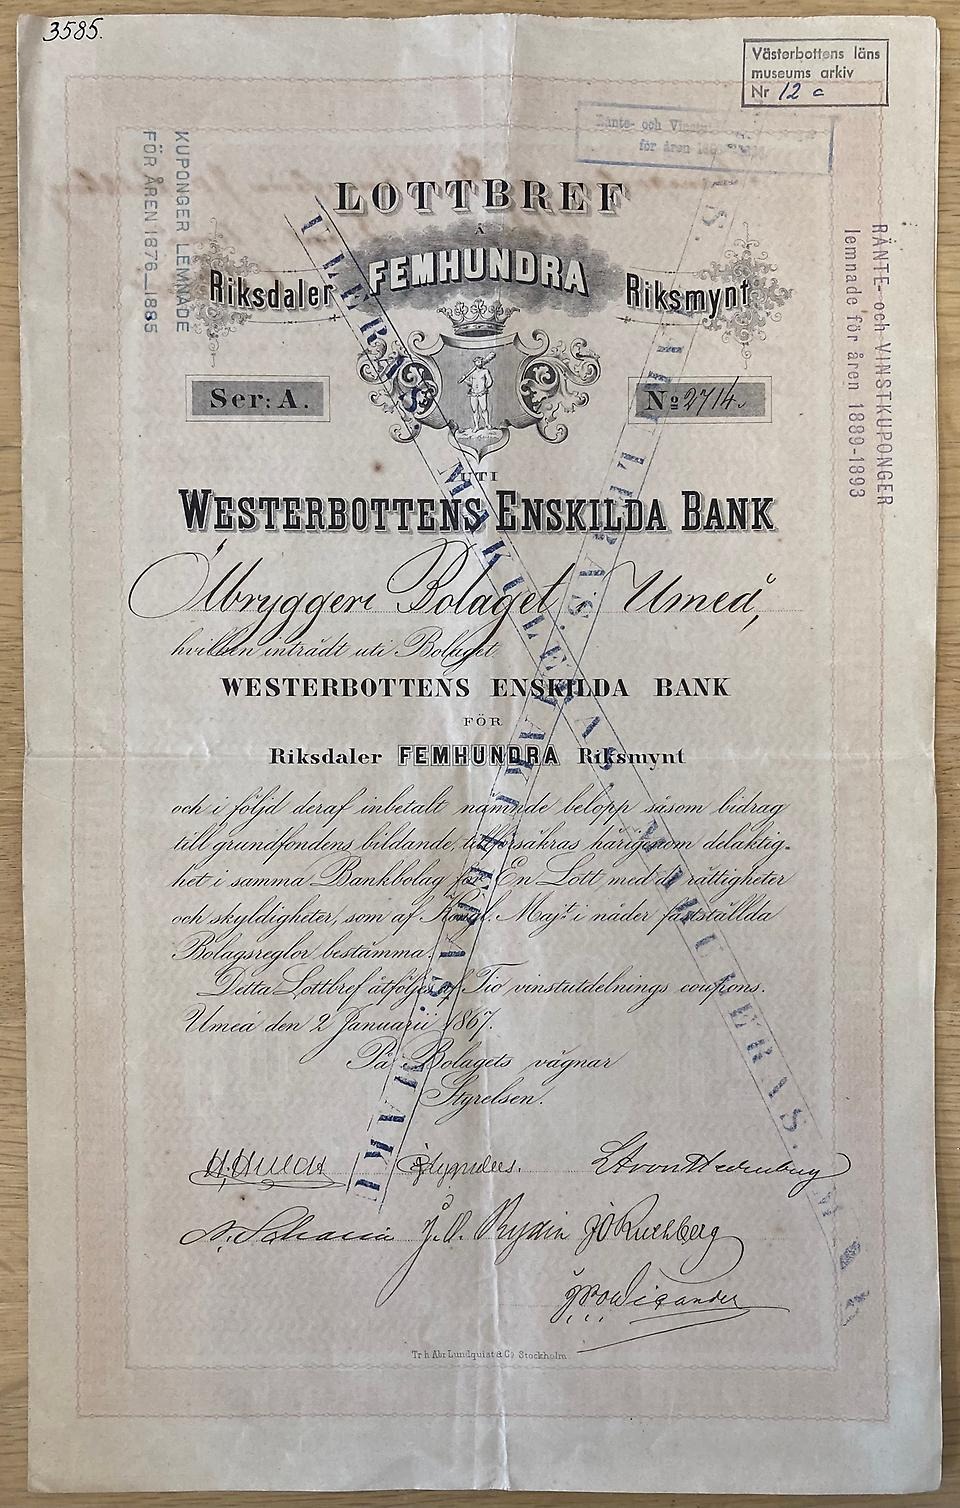 3585.
Västerbottens läns
museums arkiv
Nr 12 c
Ränte- och
för åren
KUPONGER LEMNADE
FÖR ÅREN 1876-1885
RÄNTE- och VINSTKUPONGER
lemnade för åren 1889-1893
LOTTBREF
Å
Riksdaler FEMHUNDRA Riksmynt
Ser: A.
No 2714.
UTI
WESTERBOTTENS ENSKILDA BANK
Ölbryggeri Bolaget Umeå,
hvilken inträdt uti Bolaget
WESTERBOTTENS ENSKILDA BANK
FÖR
Riksdaler FEMHUNDRA Riksmynt
och i följd deraf inbetalt nämnde belopp såsom bidrag
till grundfondens bildande, tillförsäkras härigenom delaktig-
het i samma Bankbolag för En Lott, med de rättigheter
och skyldigheter, som af Kongl. Maj:t i nåder fastställda
Bolagsreglor bestämma.
Detta Lottbref åtföljes af Tio vinstutdelnings coupons.
Umeå den 2 Januarii 1867.
På Bolagets vägnar
Styrelsen.
J. O. Rydin
Tr. h. Abr. Lundquist & Co Stockholm.
MAKULERAS. MAKULERAS.